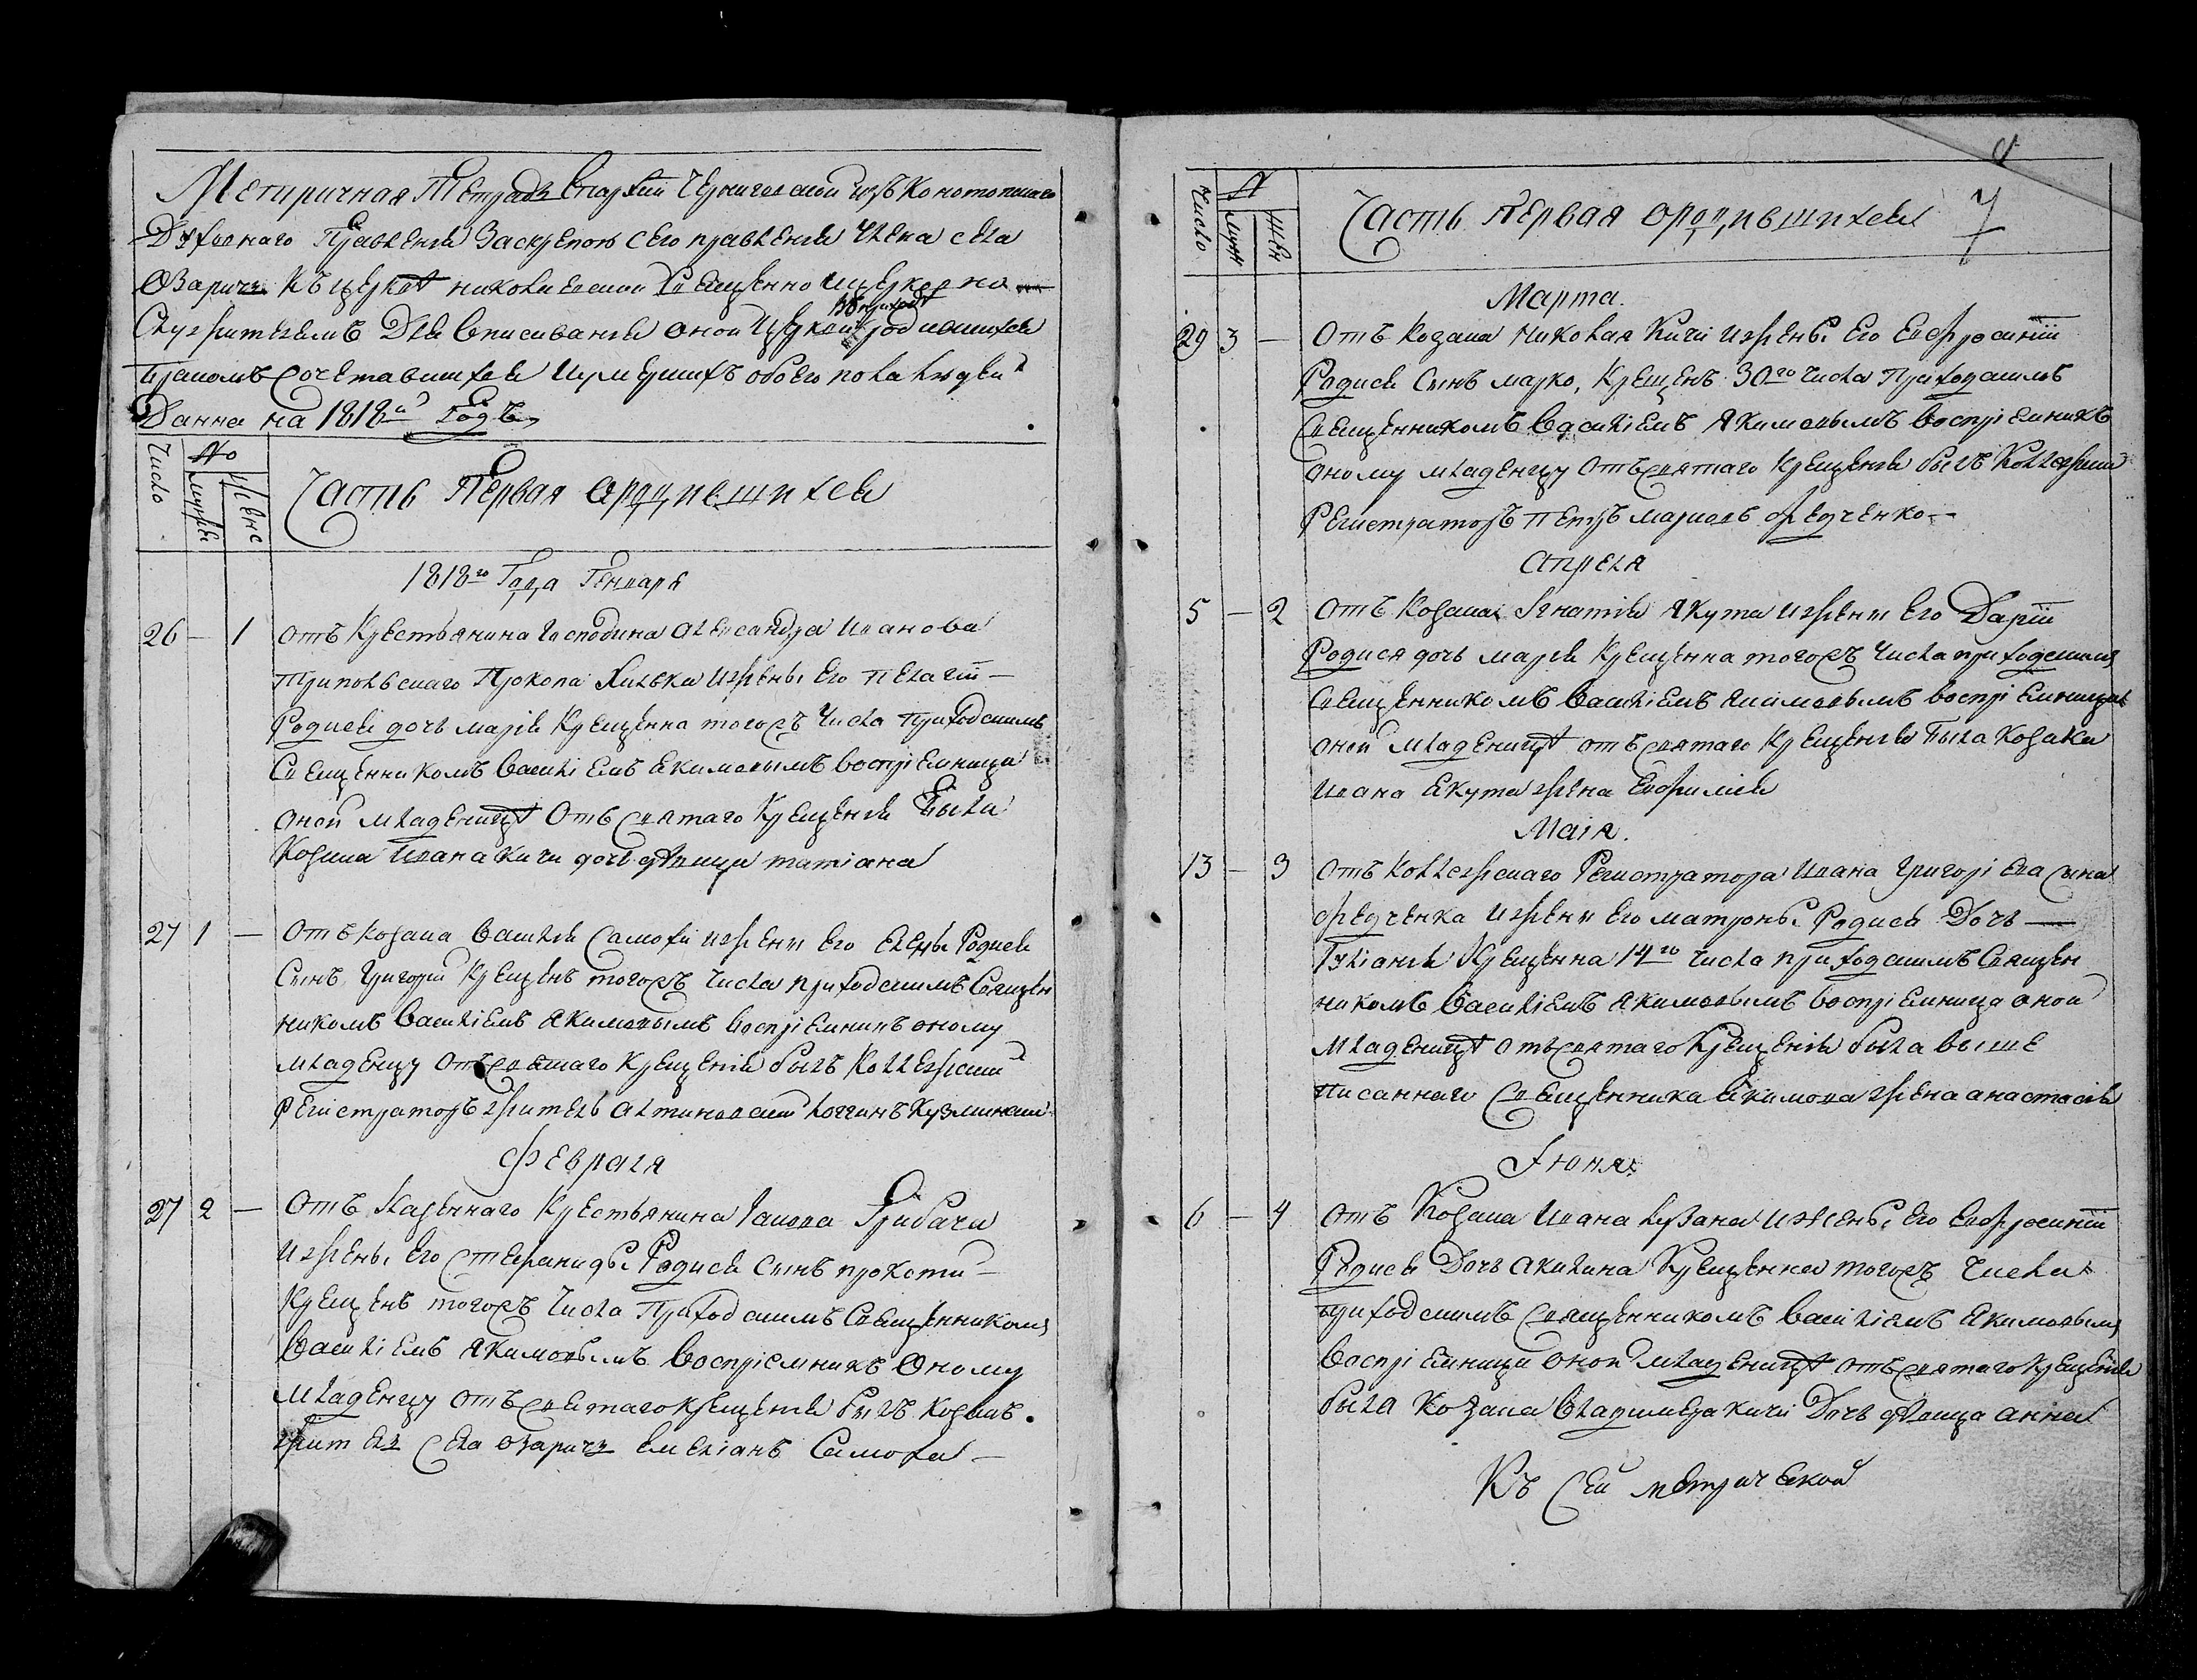 Метричная Тетрадь Епархии Черниговской изъ Конотопскаго
Духовнаго Правленія Заскрепою Сего правленія Члена Села
Озаричъ Къ церквѣ николаевской Священно ицерковно
Служителямъ Для Вписиванія оной Церкви въ приходѣ родившихся
Бракомъ Сочетавшихся Иумершихъ обоего пола людей
Данна на 1818й Годъ
Число
No
мужеск
женс
Часть Первая Ородившихся
1818го Года Генваря
26 — 1 отъ Крестьянина Господина Александра Иванова
Трипольскаго Прокопа Хилька Ижены Его Пелагіи —
Родися дочь марія Крещенна тогожъ Числа Приходскимъ
Священникомъ Василіемъ Якимовымъ воспріемница
оной младеницѣ Отъ Святаго Крещенія Была
Козака Ивана Кичи дочь дѣвица татіана
27 1 — Отъ козака Василія Самохи Ижены Его Елены Родися
Сынъ Григорій Крещенъ тогожъ Числа приходскимъ Священ
никомъ Василіемъ Якимовымъ воспріемникъ оному
младенцу отъ Святаго Крещенія былъ Коллежский
Регистраторъ житель Алтиновский Логгинъ Кузминский
Февраля
27 2 — Отъ Казеннаго Крестьянина Іакова Грибача
Ижены Его Стефаниды Родися Сынъ прокопи —
Крещенъ тогожъ Числа Приходскимъ Священникомъ
Василіемъ Якимовымъ Воспріемникъ Оному
младенцу отъ Святаго крещенія былъ козакъ
житель Села Озаричъ Емеліанъ Самоха —
7
Число
N
муж
жен
Часть Первая Ородившихся
Марта.
29 3 — Отъ Козака Николая Кичи Ижены Его Евфросиніи
Родися Сынъ марко, Крещенъ 30го Числа Приходскимъ
Священникомъ Василіемъ Якимовымъ воспріемникъ
оному младенцу отъ Святаго Крещенія былъ Коллежский
Регистраторъ Петръ марковъ Федченко —
Апреля
5 — 2 Отъ Козака Игнатія Якута Ижены Его Даріи
Родися дочь марія Крещенна тогожъ Числа приходскимъ
Священникомъ Василіемъ Якимовымъ воспріемница
оной младеницѣ отъ Святаго Крещенія Была Козака
Ивана Якута жена Евфимія
Маія.
13 — 3 Отъ Коллежскаго Регистратора Ивана Григоріева Сына
Федченка Ижены Его матроны Родися Дочь —
Гуліанія Крещенна 14го Числа приходскимъ Священ
никомъ Василіемъ Якимовымъ воспріемница оной
младеницѣ отъ Святаго Крещенія была выше
писаннаго Священника Якимова жена анастасія
Іюня.
6 — 4 отъ Козака Ивана Лузана Ижены Его Евфросиніи
Родися Дочь акилина Крещенна тогожъ Числа
приходскимъ Священникомъ Василіемъ Якимовымъ
воспріемница оной младеницѣ отъ Святаго Крещенія
была Козака Владимера Кичи Дочь дѣвица анна
Къ Сей метрической